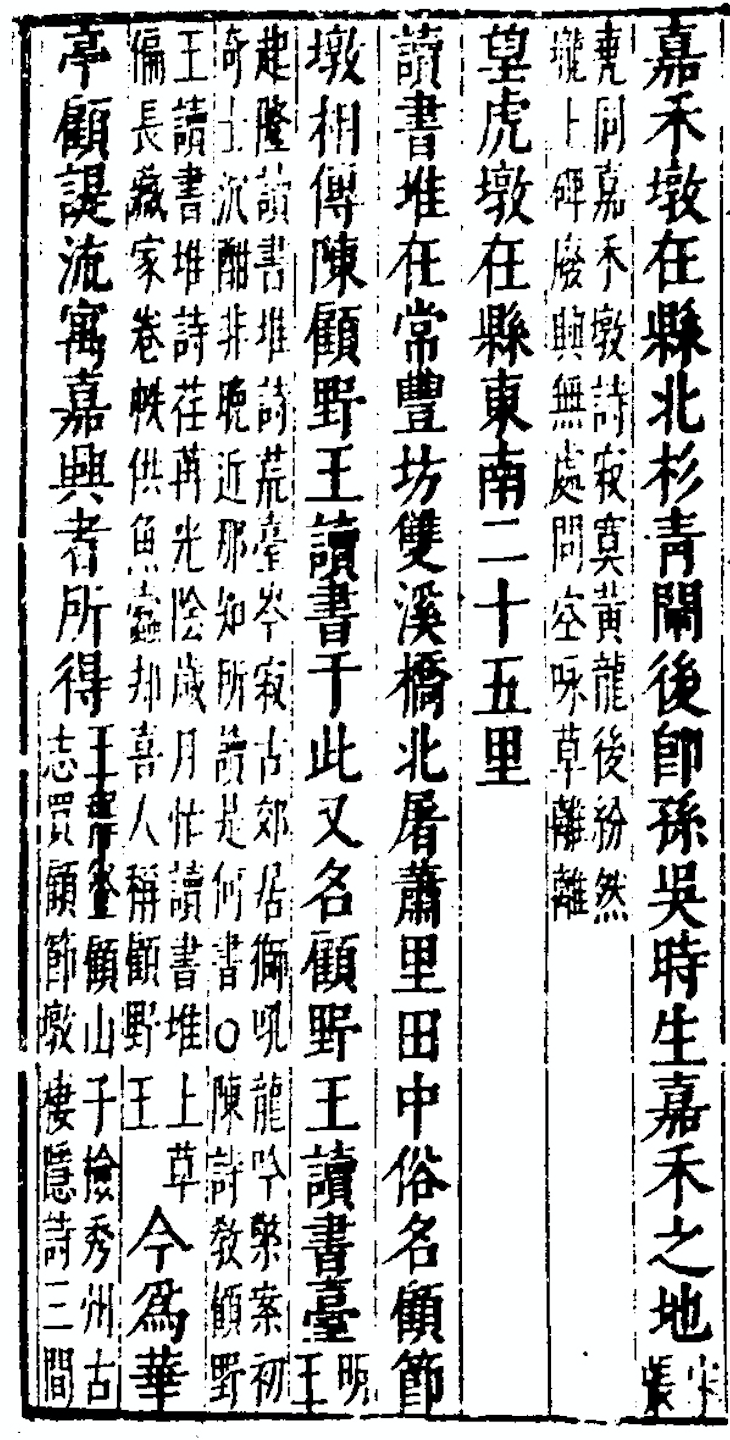 嘉禾墩在縣北杉青閘後卽孫吳時生嘉禾之地宋張
堯同嘉禾墩詩寂寞黃龍後紛然
壠上碑廢興無處問空咏草離離
望虎墩在縣東南二十五里
讀書堆在常豐坊雙溪橋北屠蕭里田中俗名顧節
墩相傳陳顧野王讀書于此又名顧野王讀書臺明王
起隆讀書堆詩荒臺岑寂古郊居獅吼龍吟案初
奇士沉酣非晚近那知所讀是何書○陳詩教顧野
王讀書堆詩荏苒光陰歲月忙讀書堆上草
偏長藏家卷帙供魚蠹却喜人稱顧野王
今爲華
亭顧諟流寓嘉興者所得
王穉登顧山子撿秀州古
志買顧節墩棲隱詩三間